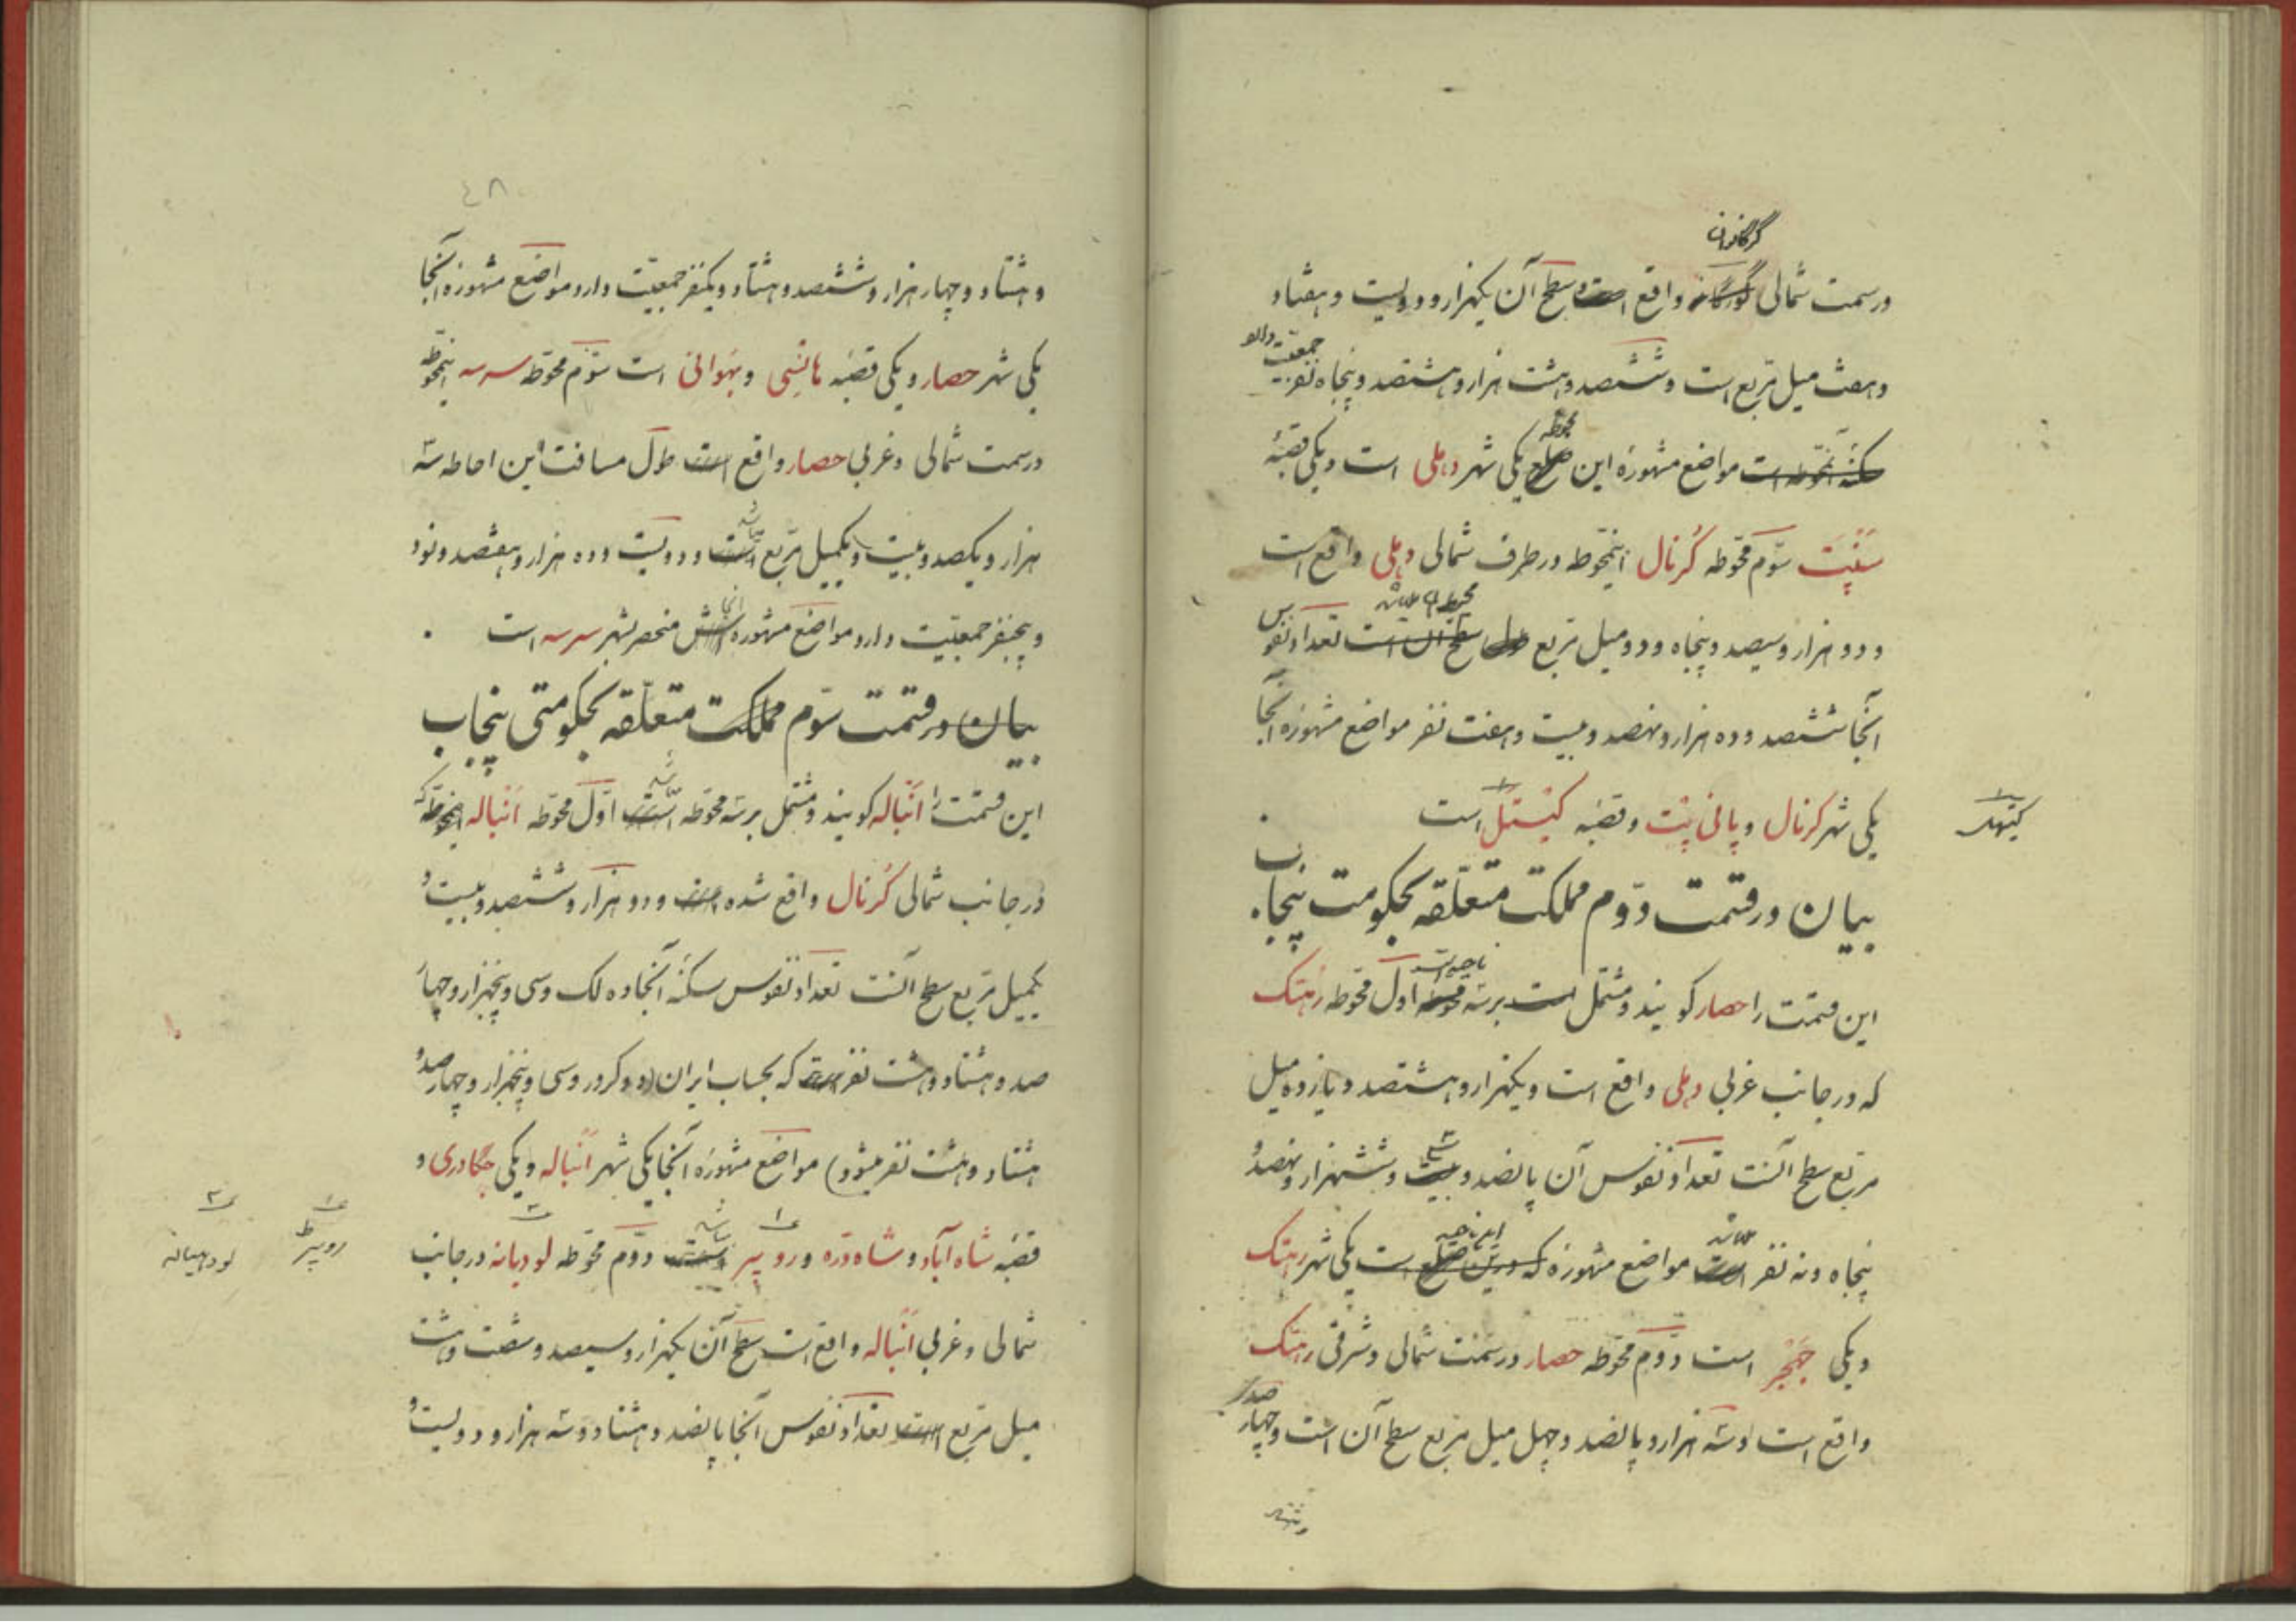 گرگانون
در سمت شمالی واقع است و سطح آن یکهزار و دویست و هفتاد
و هفت میل مربع است و ششصد و هشت هزار و هشتصد و پنجاه نفر جمعیت دارد
سکنه آنمحوطه است مواضع مشهوره این محوطه یکی شهر دهلی است و یکی قصبهٔ
سَنْپَت سوّم محوطه کُرنال اینمحوطه در طرف شمالی دهلی واقع است
و دو هزار و سیصد و پنجاه و دو میل مربع سطح آن است تعداد نفوس
آنجا ششصد و ده هزار و نهصد و بیست و هفت نفر مواضع مشهوره آنجا
یکی شهر کرنال و پانی پت و قصبه کیتل است
کیتهل
بیان در قسمت دوّم مملکت متعلّقه بحکومت پنجاب
این قسمت را حصار گویند و مشتمل است بر سه ناحیه اوّل محوطه رهتک
که در جانب غربی دهلی واقع است و یکهزار و هشتصد و یازده میل
مربع سطح آنست تعداد نفوس آن پانصد و سی و ششهزار و نهصد و
پنجاه و نه نفر است مواضع مشهوره که درین ضلع است یکی شهر رهتک
و یکی جهجر است دوّم محوطه حصار در سمت شمالی و شرقی رهتک
واقع است و سه هزار و پانصد و چهل میل مربع سطح آن است و چهار صد
و هشتاد
٤٨
و هشتاد و چهار هزار و ششصد و هشتاد و یکنفر جمعیّت دارد مواضع مشهوره آنجا
یکی شهر حصار و یکی قصبه هانسی و بهوانی است سوّم محوطه سرسه اینمحوطه
در سمت شمالی و غربی حصار واقع است طول مسافت این احاطه سه
هزار و یکصد و بیست و یکمیل مربع است و دویست و ده هزار و هفتصد و نود
و پنجنفر جمعیّت دارد مواضع مشهوره آنجا منحصر بشهر سرسه است
بیان در قسمت سوّم مملکت متعلّقه بحکومتی پنجاب
این قسمت را انباله گویند و مشتمل بر سه محوطه است اوّل محوطه انباله اینمحوطه که
در جانب شمالی کُرنال واقع شده است و دو هزار و ششصد و بیست و
یکمیل مربع سطح آنست تعداد نفوس سکنهٔ آنجا ده لک و سی و پنجهزار و چهار
صد و هشتاد و هشت نفر است که بحساب ایران (دو کرور و سی و پنجهزار و چهار صد و
هشتاد و هشت نفر میشود) مواضع مشهوره آنجا یکی شهر انباله و یکی جگادری و
قصبه شاه آباد و شاه درّه و روپر است دوّم محوطه لودیانه در جانب
روپر
لودهیانه
شمالی و غربی انباله واقع است سطح آن یکهزار و سیصد و شصت و هشت
میل مربع است تعداد نفوس آنجا پانصد و هشتاد و سه هزار و دویست و